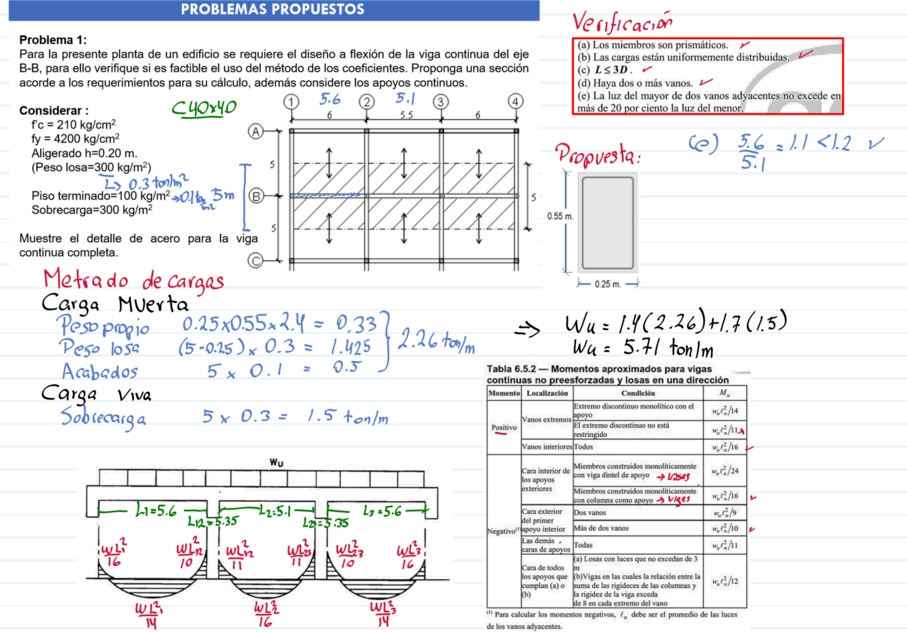 PROBLEMAS PROPUESTOS
Problema 1:
Para la presente planta de un edificio se requiere el diseño a flexión de la viga continua del eje
B-B, para ello verifique si es factible el uso del método de los coeficientes. Proponga una sección
acorde a los requerimientos para su cálculo, además considere los apoyos continuos.
Considerar :
f'c = 210 kg/cm²
fy = 4200 kg/cm²
Aligerado h=0.20 m.
(Peso losa=300 kg/m²)
↳ 0.3 ton/m²
Piso terminado=100 kg/m² → 0.1 ton/m²
Sobrecarga=300 kg/m²
Muestre el detalle de acero para la viga
continua completa.
C40x40
1 5.6 2 5.1 3 4
6 5.5 6
A
5
5m B 5
5
C
Verificación
(a) Los miembros son prismáticos. ✓
(b) Las cargas están uniformemente distribuidas. ✓
(c) L ≤ 3D. ✓
(d) Haya dos o más vanos. ✓
(e) La luz del mayor de dos vanos adyacentes no excede en
más de 20 por ciento la luz del menor.
(e) 5.6/5.1 = 1.1 < 1.2 ✓
Propuesta:
0.55 m.
0.25 m.
Metrado de cargas
Carga Muerta
Peso propio 0.25x0.55x2.4 = 0.33
Peso losa (5-0.25) x 0.3 = 1.425
Acabados 5 x 0.1 = 0.5
2.26 ton/m
Carga Viva
Sobrecarga 5 x 0.3 = 1.5 ton/m
⇒ Wu = 1.4(2.26)+1.7(1.5)
Wu = 5.71 ton/m
Tabla 6.5.2 — Momentos aproximados para vigas
continuas no preesforzadas y losas en una dirección
Momento Localización Condición Mu
Positivo
Vanos extremos
Extremo discontinuo monolítico con el
apoyo
wuℓn²/14
El extremo discontinuo no está
restringido
wuℓn²/11
Vanos interiores Todos wuℓn²/16 ✓
Negativo(1)
Cara interior de
los apoyos
exteriores
Miembros construidos monolíticamente
con viga dintel de apoyo → Losas
wuℓn²/24
Miembros construidos monolíticamente
con columna como apoyo → vigas
wuℓn²/16 ✓
Cara exterior
del primer
apoyo interior
Dos vanos wuℓn²/9
Más de dos vanos wuℓn²/10 ✓
Las demás
caras de apoyos
Todas wuℓn²/11
Cara de todos
los apoyos que
cumplan (a) o
(b)
(a) Losas con luces que no excedan de 3
m
(b)Vigas en las cuales la relación entre la
suma de las rigideces de las columnas y
la rigidez de la viga exceda
de 8 en cada extremo del vano
wuℓn²/12
(1) Para calcular los momentos negativos, ℓn debe ser el promedio de las luces
de los vanos adyacentes.
Wu
L1=5.6 L2=5.1 L3=5.6
L12=5.35 L23=5.35
WL1²/16 WL12²/10 WL12²/11 WL23²/11 WL23²/10 WL3²/16
WL1²/14 WL2²/16 WL3²/14